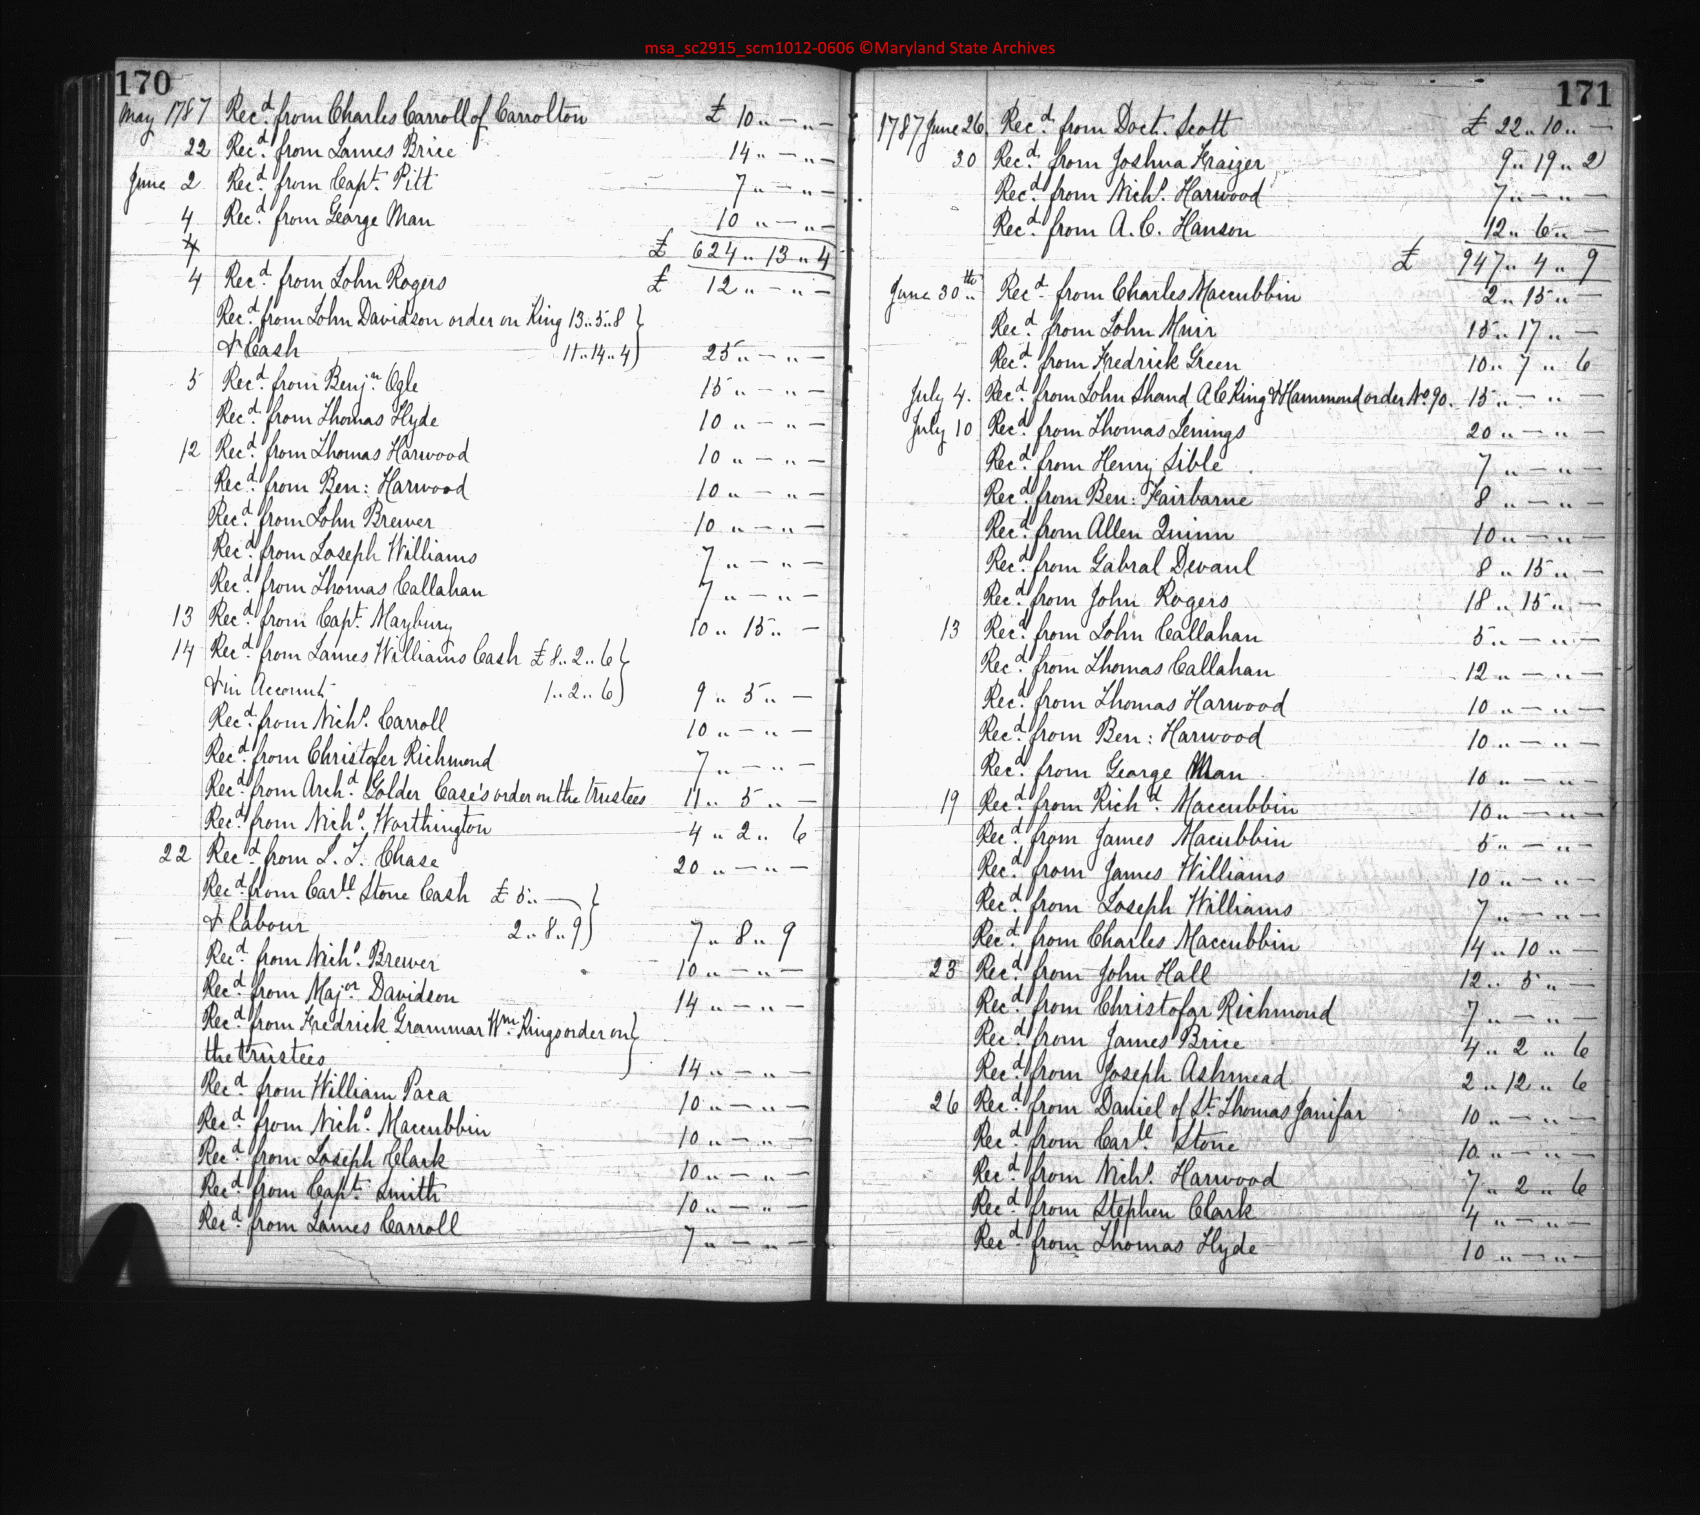 msa_sc2915_scm1012-0606 ©Maryland State Archives
170
May 1787 Recd. from Charles Carroll of Carrolton £ 10 .. — .. —
22 Recd. from James Brice 14 .. — .. —
June 2 Recd. from Capt. Pitt 7 .. — .. —
4 Recd. from George Man 10 .. — .. —
£ 624 .. 13 .. 4
4 Recd. from John Rogers £ 12 .. — .. —
Recd. from John Davidson order on King 13..5..8
& Cash 11..14..4 25 .. — .. —
5 Recd. from Benjn. Ogle 15 .. — .. —
Recd. from Thomas Hyde 10 .. — .. —
12 Recd. from Thomas Harwood 10 .. — .. —
Recd. from Ben: Harwood 10 .. — .. —
Recd. from John Brewer 10 .. — .. —
Recd. from Joseph Williams 7 .. — .. —
Recd. from Thomas Callahan 7 .. — .. —
13 Recd. from Capt. Maybury 10 .. 15 .. —
14 Recd. from James Williams Cash £ 8..2..6
& in Account 1..2..6 9 .. 5 .. —
Recd. from Nichs. Carroll 10 .. — .. —
Recd. from Christofer Richmond 7 .. — .. —
Recd. from Archd. Golder Case's order on the trustees 11 .. 5 .. —
Recd. from Nichs. Worthington 4 .. 2 .. 6
22 Recd. from J. T. Chase 20 .. — .. —
Recd. from Carll Stone Cash £ 5 .. —
& Labour 2..8..9 7 .. 8 .. 9
Recd. from Nichs. Brewer 10 .. — .. —
Recd. from Major. Davidson 14 .. — .. —
Recd. from Fredrick Grammar Wm. Kings order on
the trustees 14 .. — .. —
Recd. from William Paca 10 .. — .. —
Recd. from Nichs. Maccubbin 10 .. — .. —
Recd. from Joseph Clark 10 .. — .. —
Recd. from Capt. Smith 10 .. — .. —
Recd. from James Carroll 7 .. — .. —
171
1787 June 26 Recd. from Doct. Scott £ 22 .. 10 .. —
30 Recd. from Joshua Fraizer 9 .. 19 .. 2
Recd. from Nichs. Harwood 7 .. — .. —
Recd. from A. C. Hanson 12 .. 6 .. —
£ 947 .. 4 .. 9
June 30th .. Recd. from Charles Maccubbin 2 .. 15 .. —
Recd. from John Muir 15 .. 17 .. —
Recd. from Fredrick Green 10 .. 7 .. 6
July 4. Recd. from John Shand A C King & Hammond order No. 90. 15 .. — .. —
July 10 Recd. from Thomas Jenings 20 .. — .. —
Recd. from Henry Sible 7 .. — .. —
Recd. from Ben: Fairbarne 8 .. — .. —
Recd. from Allen Quinn 10 .. — .. —
Recd. from Gabral Devaul 8 .. 15 .. —
Recd. from John Rogers 18 .. 15 .. —
13 Recd. from John Callahan 5 .. — .. —
Recd. from Thomas Callahan 12 .. — .. —
Recd. from Thomas Harwood 10 .. — .. —
Recd. from Ben: Harwood 10 .. — .. —
Recd. from George Man 10 .. — .. —
19 Recd. from Richd. Maccubbin 10 .. — .. —
Recd. from James Macubbin 5 .. — .. —
Recd. from James Williams 10 .. — .. —
Recd. from Joseph Williams 7 .. — .. —
Recd. from Charles Maccubbin 14 .. 10 .. —
23 Recd. from John Hall 12 .. 5 .. —
Recd. from Christofor Richmond 7 .. — .. —
Recd. from James Brice 4 .. 2 .. 6
Recd. from Joseph Ashmead 2 .. 12 .. 6
26 Recd. from Daniel of St. Thomas Janifar 10 .. — .. —
Recd. from Carll Stone 10 .. — .. —
Recd. from Nichs. Harwood 7 .. 2 .. 6
Recd. from Stephen Clark 4 .. — .. —
Recd. from Thomas Hyde 10 .. — .. —